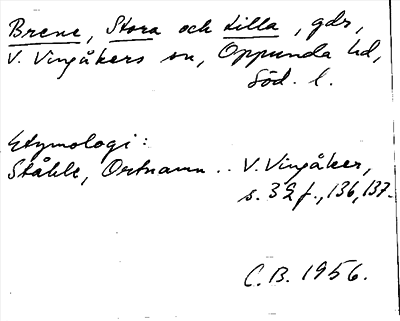 Brene, Stora och Lilla, gdr,
V. Vingåkers sn, Oppunda hd,
Söd. l.
Etymologi:
Ståhle, Ortnamn .. V. Vingåker,
s. 32 f., 136, 137.
C.B. 1956.